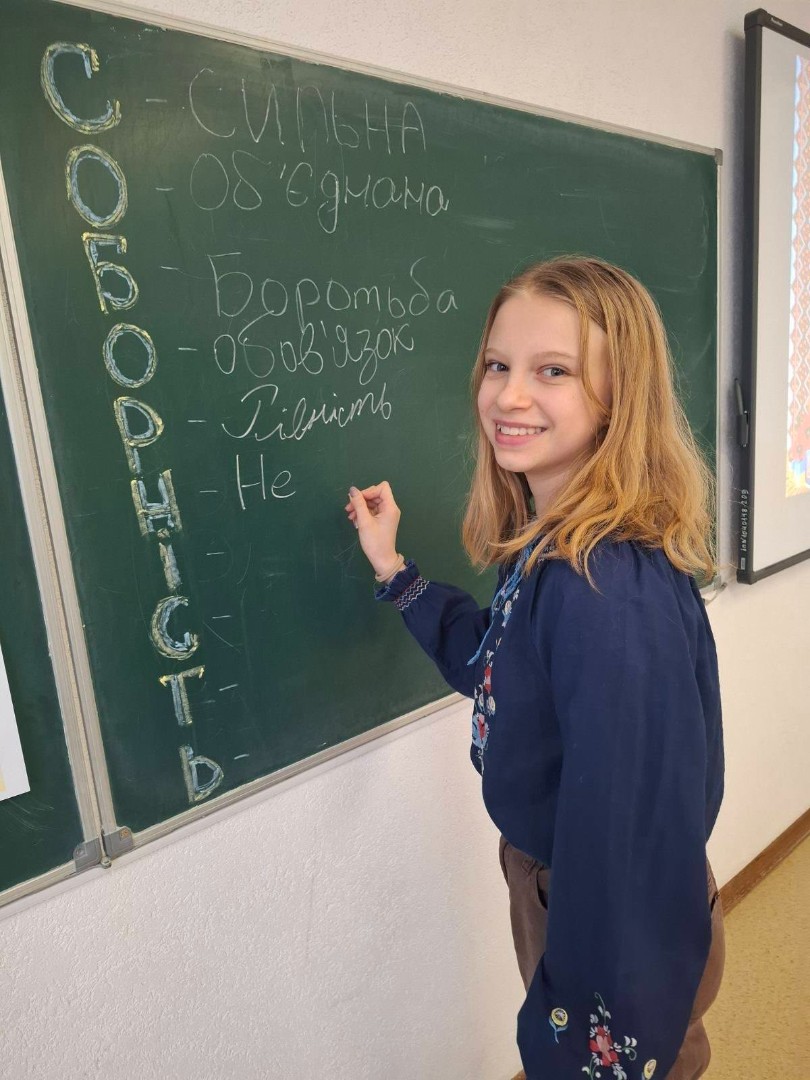 С - СИЛЬНА
О - Об'Єднана
Б - Боротьба
О - обов'язок
Р - Рівність
Н - Не
І -
С -
Т -
Ь -